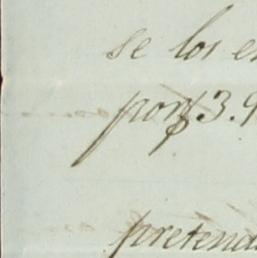 se los e
por $3.9
pretend